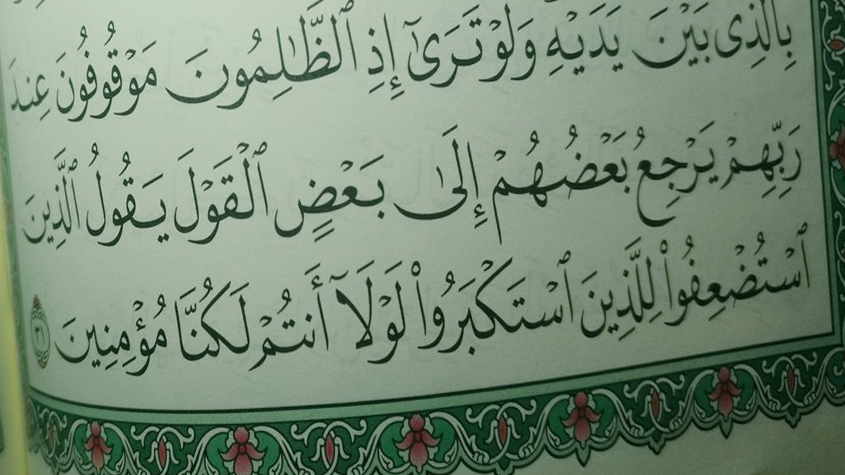 بِٱلَّذِى بَيْنَ يَدَيْهِ وَلَوْ تَرَىٰٓ إِذِ ٱلظَّٰلِمُونَ مَوْقُوفُونَ عِندَ
رَبِّهِمْ يَرْجِعُ بَعْضُهُمْ إِلَىٰ بَعْضٍ ٱلْقَوْلَ يَقُولُ ٱلَّذِينَ
ٱسْتُضْعِفُوا۟ لِلَّذِينَ ٱسْتَكْبَرُوا۟ لَوْلَآ أَنتُمْ لَكُنَّا مُؤْمِنِينَ ٣١